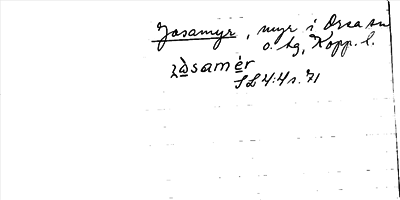 Josamyr, myr i Orsa sn
o. hg, Kopp. l.
jòsamér
SL 4:4 s. 71